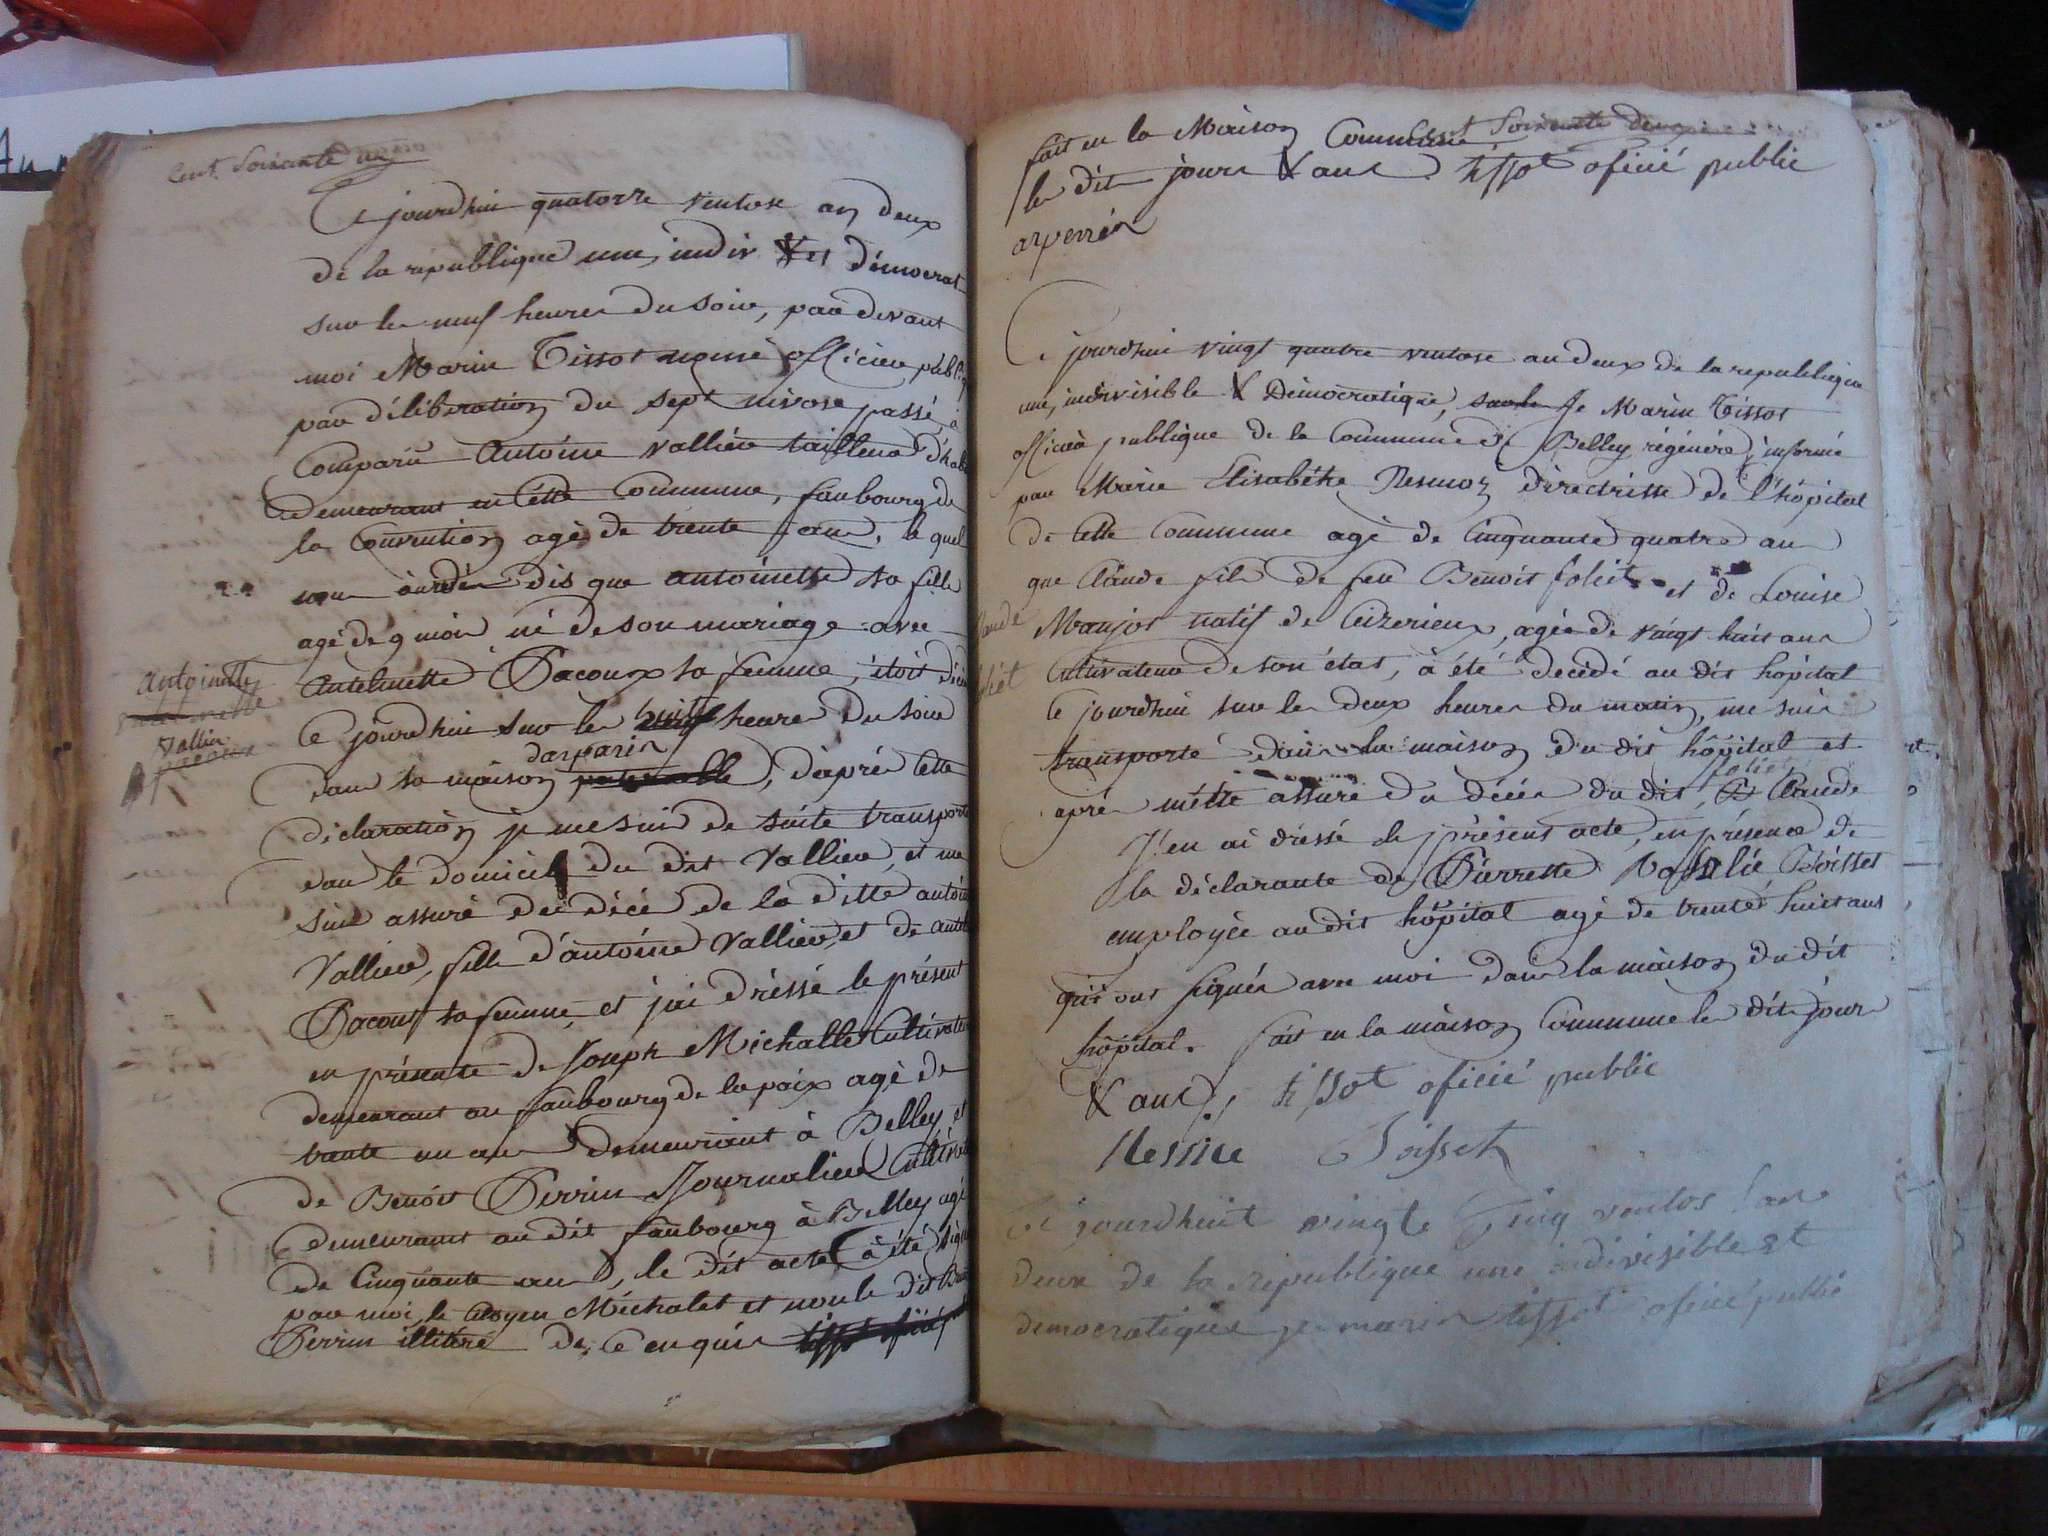 Cent Soixante un
Ce jourdhui quatorze ventose an deux
de la republique une, indiv & et démocrat
sur les neuf heures du soir, par devant
moi Marin Tissot nomé officier publiq
par délibération du sept nivose passé, à
Comparu Antoine Vallier tailleur d'hab
demeurant en cette Commune, faubourg de
la Convention agé de trente ans, le quel
nous dis que antoinette sa fille
agé de 9 mois né de son mariage avec
Antelmette Pacoux sa femme, étoit décé
Ce jourdhui sur les huit heures du soir
darparin
dans sa maison, d'après cette
déclaration je me suis de suite transporté
dans le domicil du dit Vallier, et me
suis assuré du décé de la ditte antoin
Vallier, fille d'antoine Vallier, et de antel
Pacoux sa femme, et j'ai dressé le présent
en présence de Joseph Michallet Cultivateu
demeurant au faubourg de la paix agé de
trente un ans demeurant à Belley et
de Benoit Perrin Journalier Cultivat
demeurant au dit faubourg à Belley agé
de Cinquante ans, le dit acte à été sign
par moi, le Citoyen Michalet et non le dit Ben
Perrin illitéré de ce enquis tissot oficié p
Antoinette
Vallier
fait en la Maison Commune
Cent Soixante deux
les dit jours & ans. tissot oficié public
arperrin
Ce jourdhui vingt quatre ventose an deux de la republique
une, indivisible & Démocratique, Je Marin Tissot
officier publique de la Commune de Belley régénéré, informé
par Marie Elisabéthe directrisse de l'hôpital
de cette Commune agé de Cinquante quatre ans
que Claude fils de feu Benoit foliet et de Louise
Manjot natif de Ceizerieux, agée de vingt huit ans
Cultivateur de son état, à été décédé au dit hôpital
Ce jourdhui sur les deux heures du matin, me suis
transporté dans la maison du dit hôpital et
foliet
après mêtre assuré du décés du dit Claude
J'en ai dressé le présent acte, en présence de
la déclarante de Pierrette Rosalie Boisset
employée au dit hôpital agé de trente huit ans
qui ont signés avec moi dans la maison du dit
hôpital. fait en la maison Commune les dit jour
& ans, tissot oficié public
Boisset
Ce jourdhuit vingte Cinq ventos lan
deux de la republique une indivisible et
democratique je marin tissot oficié public